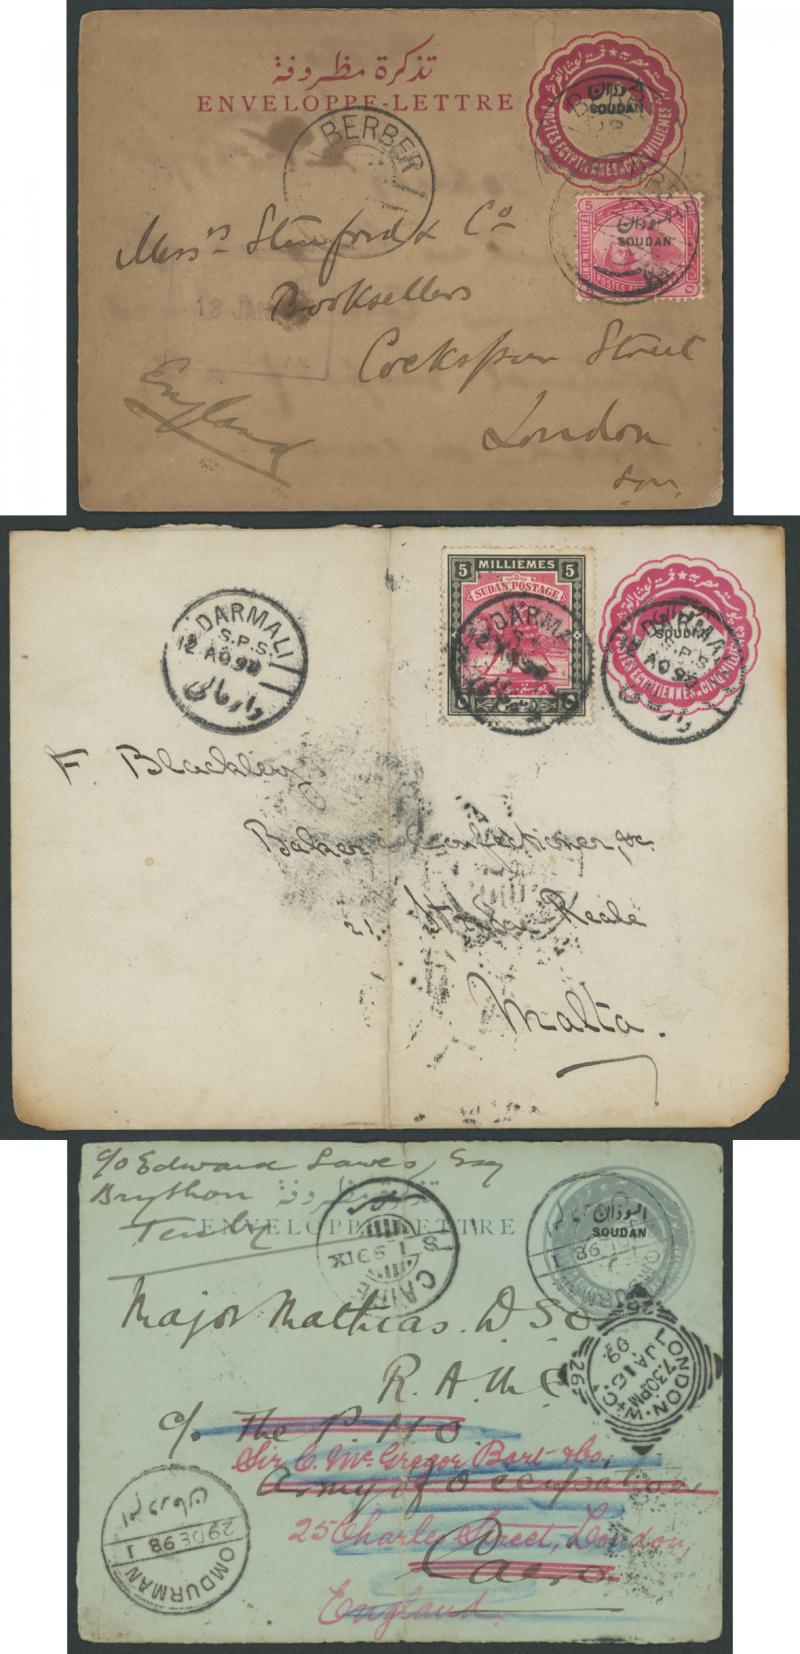 تذكرة مظروفة
ENVELOPPE-LETTRE
السودان
SOUDAN
POSTES EGYPTIENNES CINQ MILLIEMES
BERBER
5
السودان
SOUDAN
CINQ MILLIEMES
Messrs Stanford & Co
Booksellers
18 JAN
Cockspur Street
England
London
5 MILLIEMES 5
SUDAN POSTAGE
DARMALI
S.P.S.
12 AO 98
دارمالي
DARMA
SOUDAN
DARMA
S.P.S.
AO 98
F. Blackley
Baker Confectioner &c.
21. Strada Reale
Malta.
c/o Edward Lawes, Esq
Brython
Tenby
تذكرة مظروفة
ENVELOPPE-LETTRE
السودان
SOUDAN
CAIRE
LONDON. W.C.
7.30PM
JA 16
99
26
26
Major Mathias. D.S.O
R.A.M.C
c/o. The P.M.O.
Sir C. McGregor Bart & Co,
Army of Occupation
25 Charles Street, London,
Cairo
England.
ام درمان
29 DE 98 1
OMDURMAN